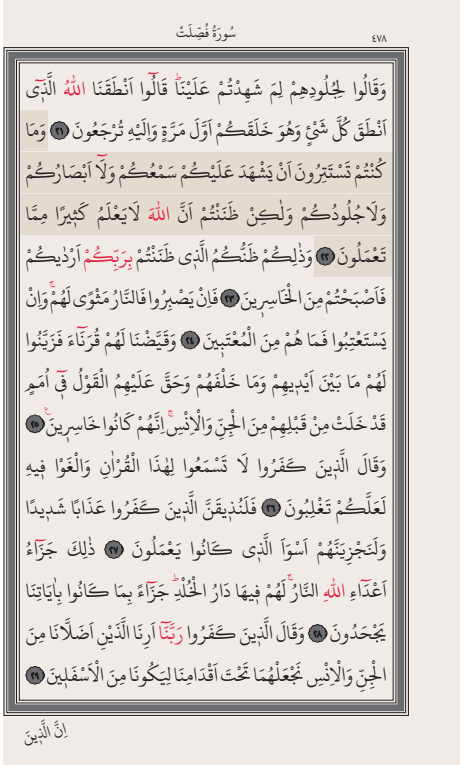 سُورَةُ فُصِّلَتْ
٤٧٨
وَقَالُوا لِجُلُودِهِمْ لِمَ شَهِدْتُمْ عَلَيْنَاۜ قَالُٓوا اَنْطَقَنَا اللّٰهُ الَّذ۪ٓي
اَنْطَقَ كُلَّ شَيْءٍ وَهُوَ خَلَقَكُمْ اَوَّلَ مَرَّةٍ وَاِلَيْهِ تُرْجَعُونَ ٢١ وَمَا
كُنْتُمْ تَسْتَتِرُونَ اَنْ يَشْهَدَ عَلَيْكُمْ سَمْعُكُمْ وَلَٓا اَبْصَارُكُمْ
وَلَا جُلُودُكُمْ وَلٰكِنْ ظَنَنْتُمْ اَنَّ اللّٰهَ لَا يَعْلَمُ كَث۪يرًا مِمَّا
تَعْمَلُونَ ٢٢ وَذٰلِكُمْ ظَنُّكُمُ الَّذ۪ي ظَنَنْتُمْ بِرَبِّكُمْ اَرْدٰيكُمْ
فَاَصْبَحْتُمْ مِنَ الْخَاسِر۪ينَ ٢٣ فَاِنْ يَصْبِرُوا فَالنَّارُ مَثْوًى لَهُمْۚ وَاِنْ
يَسْتَعْتِبُوا فَمَا هُمْ مِنَ الْمُعْتَب۪ينَ ٢٤ وَقَيَّضْنَا لَهُمْ قُرَنَٓاءَ فَزَيَّنُوا
لَهُمْ مَا بَيْنَ اَيْد۪يهِمْ وَمَا خَلْفَهُمْ وَحَقَّ عَلَيْهِمُ الْقَوْلُ ف۪ٓي اُمَمٍ
قَدْ خَلَتْ مِنْ قَبْلِهِمْ مِنَ الْجِنِّ وَالْاِنْسِۚ اِنَّهُمْ كَانُوا خَاسِر۪ينَ۟ ٢٥
وَقَالَ الَّذ۪ينَ كَفَرُوا لَا تَسْمَعُوا لِهٰذَا الْقُرْاٰنِ وَالْغَوْا ف۪يهِ
لَعَلَّكُمْ تَغْلِبُونَ ٢٦ فَلَنُذ۪يقَنَّ الَّذ۪ينَ كَفَرُوا عَذَابًا شَد۪يدًا
وَلَنَجْزِيَنَّهُمْ اَسْوَاَ الَّذ۪ي كَانُوا يَعْمَلُونَ ٢٧ ذٰلِكَ جَزَٓاءُ
اَعْدَٓاءِ اللّٰهِ النَّارُۚ لَهُمْ ف۪يهَا دَارُ الْخُلْدِۜ جَزَٓاءً بِمَا كَانُوا بِاٰيَاتِنَا
يَجْحَدُونَ ٢٨ وَقَالَ الَّذ۪ينَ كَفَرُوا رَبَّنَٓا اَرِنَا الَّذَيْنِ اَضَلَّانَا مِنَ
الْجِنِّ وَالْاِنْسِ نَجْعَلْهُمَا تَحْتَ اَقْدَامِنَا لِيَكُونَا مِنَ الْاَسْفَل۪ينَ ٢٩
اِنَّ الَّذ۪ينَ